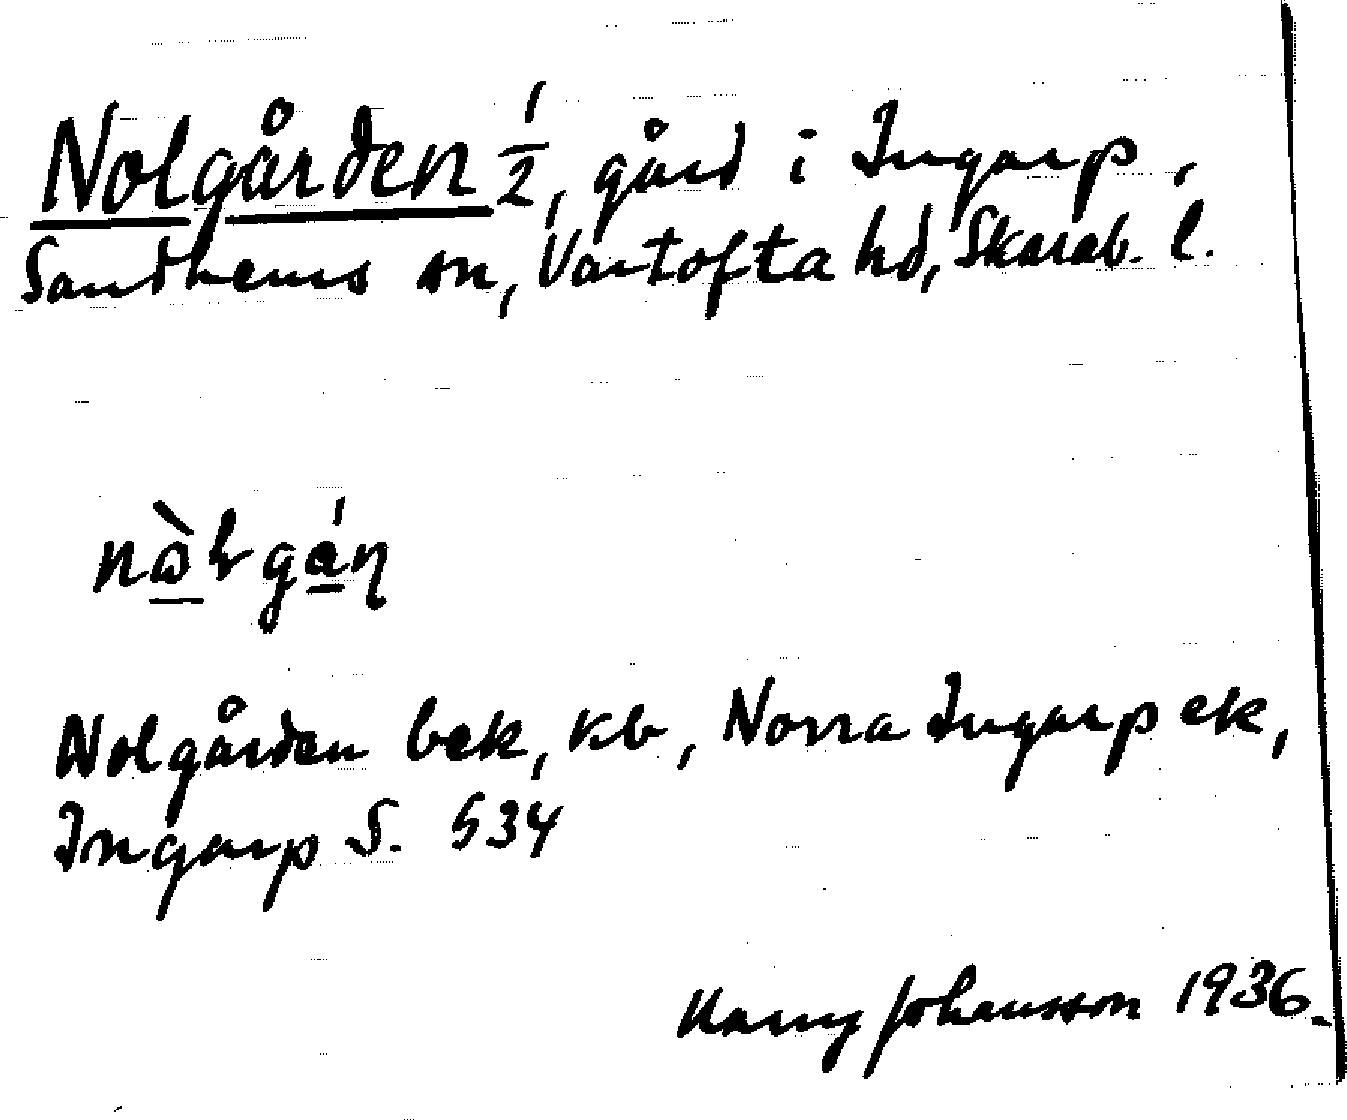 Nolgården 1/2, gård i Ingarp,
Sandhems sn, Vartofta hd, Skarab. l.
Nolgården bek, kb, Norra Ingarp ek,
Ingarp S. 534
Harry Johansson 1936.